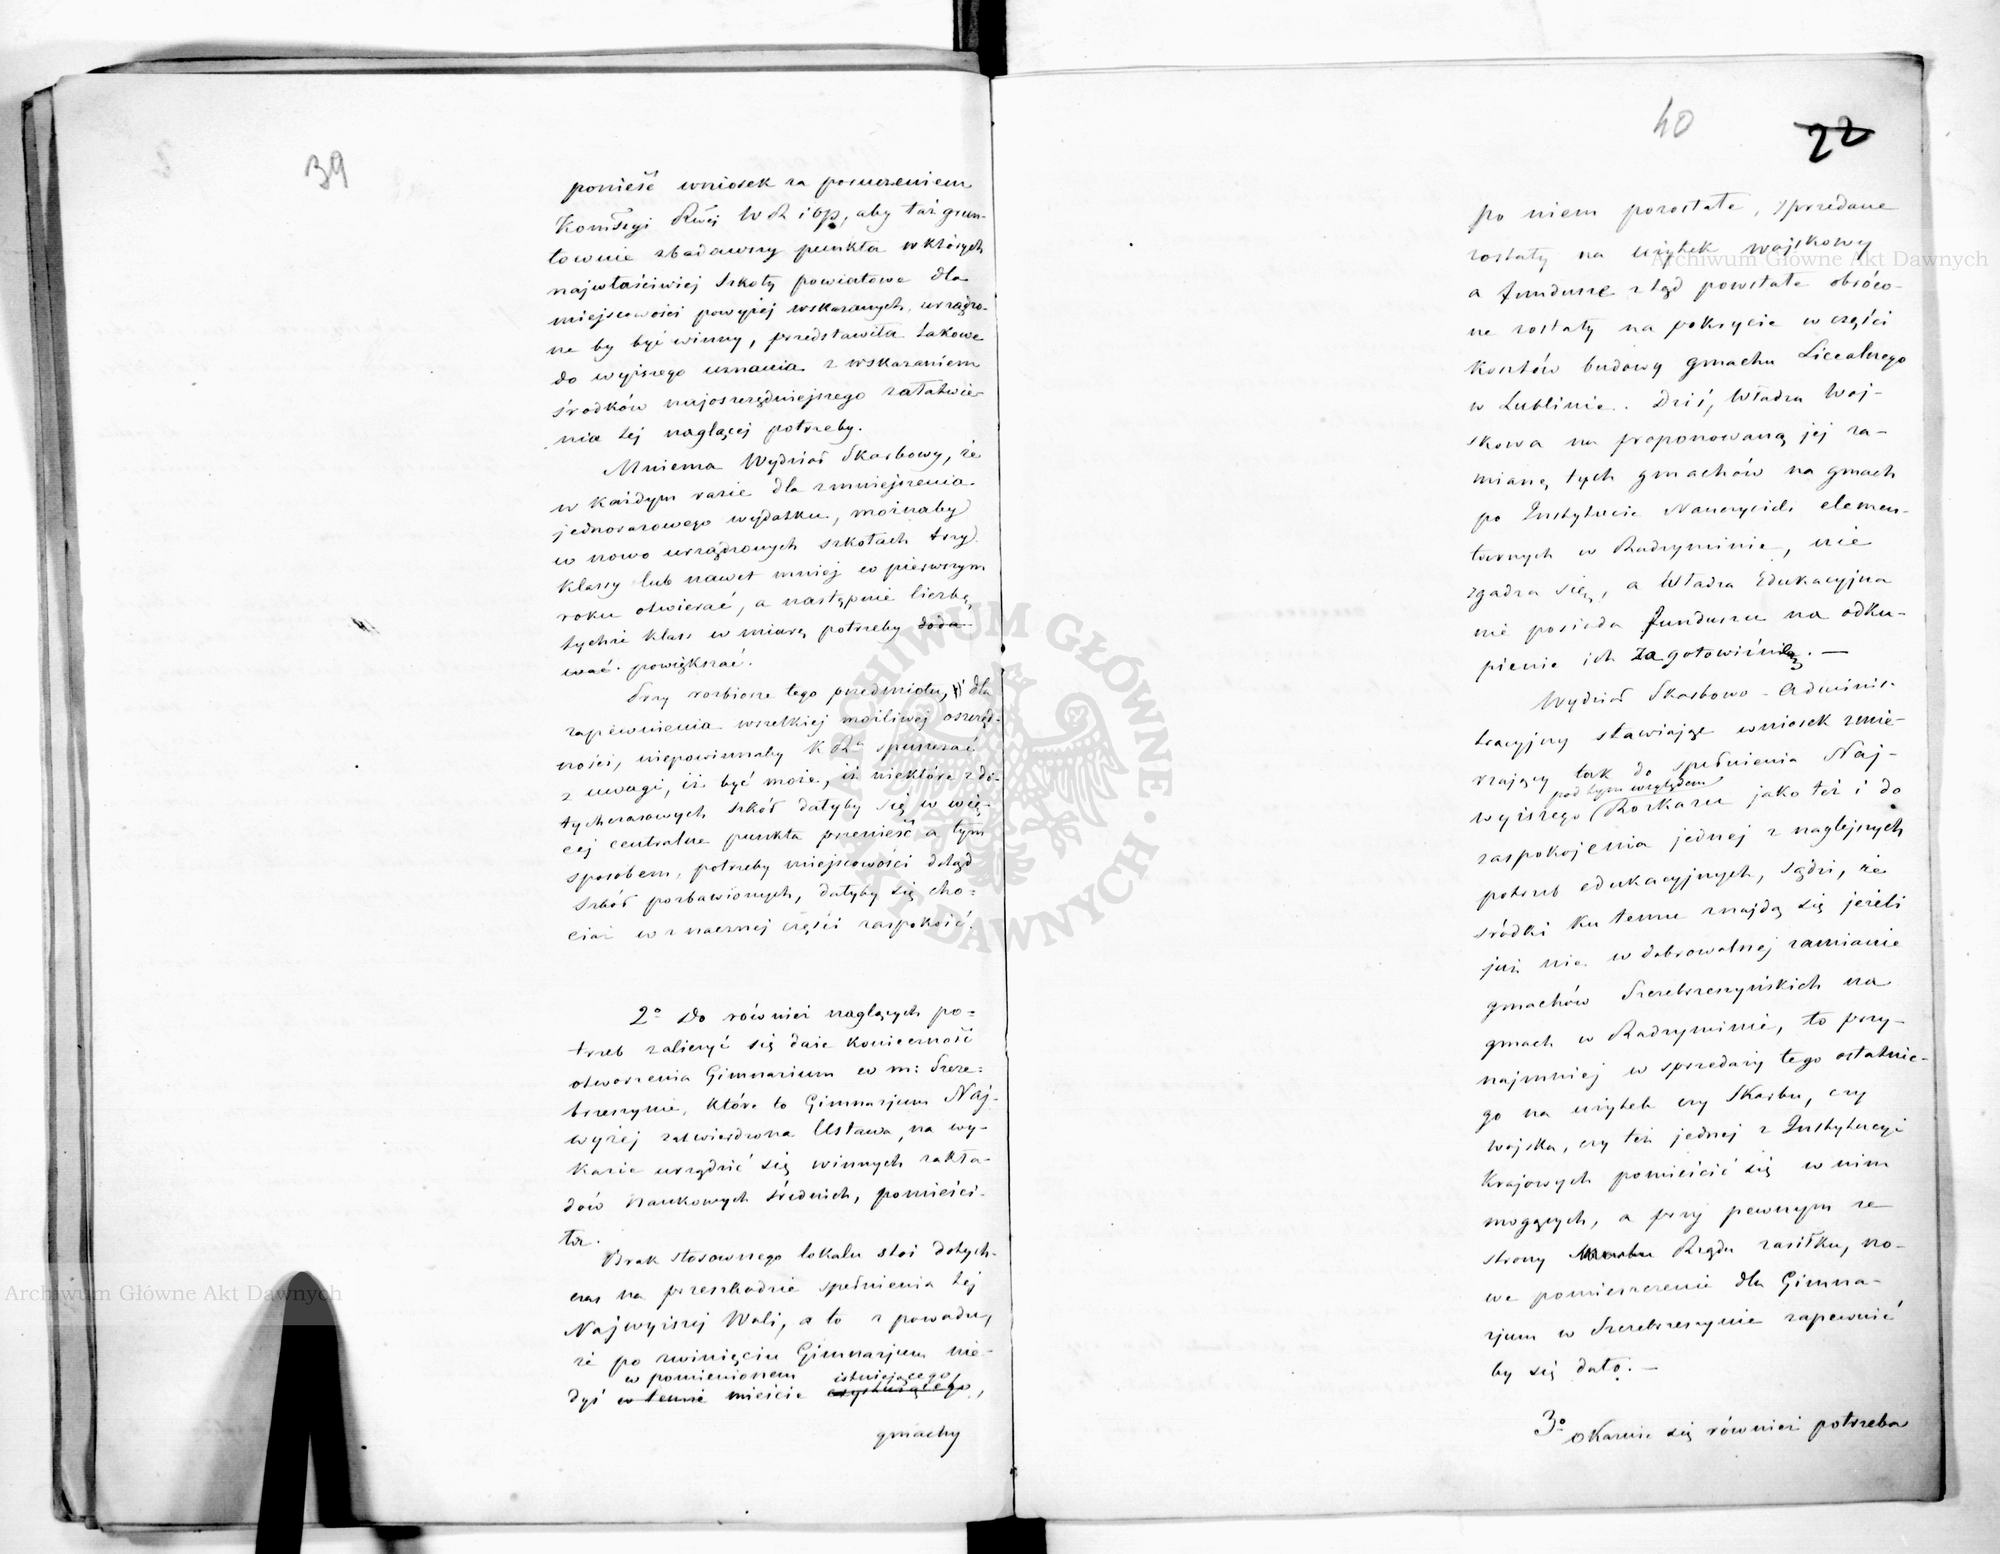 39
ponieść wniosek za poruczeniem
Kommissyi Rwej W R i OP, aby taż grun-
townie zbadawszy punkta w których
najwłaściwiej szkoły powiatowe dla
miejscowości powyżej wskazanych, urządzo-
ne by być winny, przedstawiła takowe
do wyższego uznania z wskazaniem
środków najoszczędniejszego załatwie-
nia tej naglącej potrzeby.
Mniema Wydział Skarbowy, że
w każdym razie dla zmniejszenia
jednorazowego wydatku, możnaby
w nowo urządzonych szkołach trzy
klassy lub nawet mniej w pierwszym
roku otwierać, a następnie liczbę
tychże klass w miarę potrzeby doda-
wać. powiększać.
Przy rozbiorze tego przedmiotu, i dla
zapewnienia wszelkiej możliwej oszczęd-
ności, niepowinnaby K Ra spuszczać
z uwagi, iż być może, iż niektóre z do-
tychczasowych szkół dałyby się w wię-
cej centralne punkta przenieść a tym
sposobem, potrzeby miejscowości dotąd
szkół pozbawionych, dałyby się cho-
ciaż w znacznej części zaspokoić.
2o Do również naglących po-
trzeb zaliczyć się daie konieczność
otworzenia Gimnazium w m: Szcze-
brzeszynie, które to Gimnazjum Naj-
wyżej zatwierdzona Ustawa, na wy-
kazie urządzić się winnych zakła-
dów naukowych średnich, pomieści-
ła.
Brak stosownego lokalu stoi dotych-
czas na przeszkodzie spełnienia tej
Najwyższej Woli, a to z powodu,
że po zwinięciu Gimnazjum nie-
w pomienionem istniejącego,
dyś w temże mieście exystującego,
gmachy
40
22
po niem pozostałe, sprzedane
zostały na użytek wojskowy
a fundusze ztąd powstałe obróco-
ne zostały na pokrycie w części
kosztów budowy gmachu Licealnego
w Lublinie. Dziś, Władza Woj-
skowa na proponowaną jej za-
mianę tych gmachów na gmach
po Instytucie Nauczycieli elemen-
tarnych w Radzyminie, nie
zgadza się, a Władza Edukacyjna
nie posiada funduszu na odku-
pienie ich za gotowiznę. —
Wydział Skarbowo-Adminis-
tracyjny stawiając wniosek zmie-
rzający tak do spełnienia Naj-
pod tym względem
wyższego Rozkazu jako też i do
zaspokojenia jednej z naglejszych
potrzeb edukacyjnych, sądzi, że
środki ku temu znajdą się jeżeli
już nie w dobrowolnej zamianie
gmachów Szczebrzeszyńskich na
gmach w Radzyminie, to przy-
najmniej w sprzedaży tego ostatnie-
go na użytek czy Skarbu, czy
wojska, czy też jednej z Instytucyi
Krajowych pomieścić się w nim
mogących, a przy pewnym ze
strony Rządu zasiłku, no-
we pomieszczenie dla Gimna-
zjum w Szczebrzeszynie zapewnić
by się dało. —
3o Okazuie się również potrzeba
Archiwum Główne Akt Dawnych
Archiwum Główne Akt Dawnych
ARCHIWUM GŁÓWNE AKT DAWNYCH